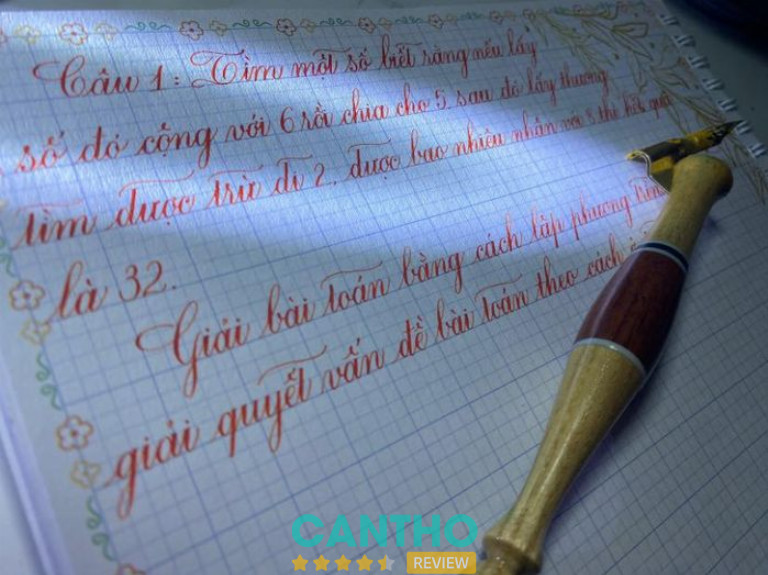 Câu 1: Tìm một số biết rằng nếu lấy
số đó cộng với 6 rồi chia cho 5 sau đó lấy thương
tìm được trừ đi 2, được bao nhiêu nhân với 5 thì kết quả
là 32.
Giải bài toán bằng cách lập phương
giải quyết vấn đề bài toán theo cách
CANTHO
REVIEW